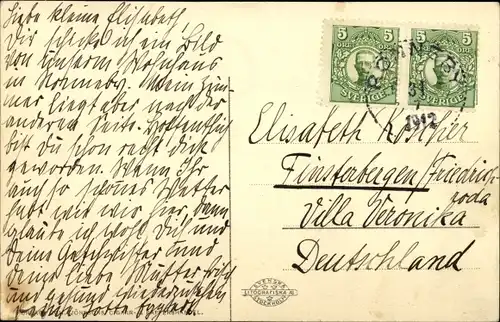 Liebe kleine Elisabeth,
Dir schicke ich ein Bild
von unserm Wohnhaus
in Ronneby. Mein Zim-
mer liegt aber nach der
anderen Seite. Hoffentlich
bist Du schon recht dick
geworden. Wenn Ihr
auch so schönes Wetter
habt wie wir hier, dann
glaube ich wohl Du und
Deine Geschwister und
deine liebe Mutter frisch
und gesund wiederzusehen
5 5
ÖRE
SVERIGE
RONNEBY
31
1912
Elisabeth
Finsterbergen/Friedrich-
roda
Villa Veronika
Deutschland
SVENSKA
LITOGRAFISKA
STOCKHOLM